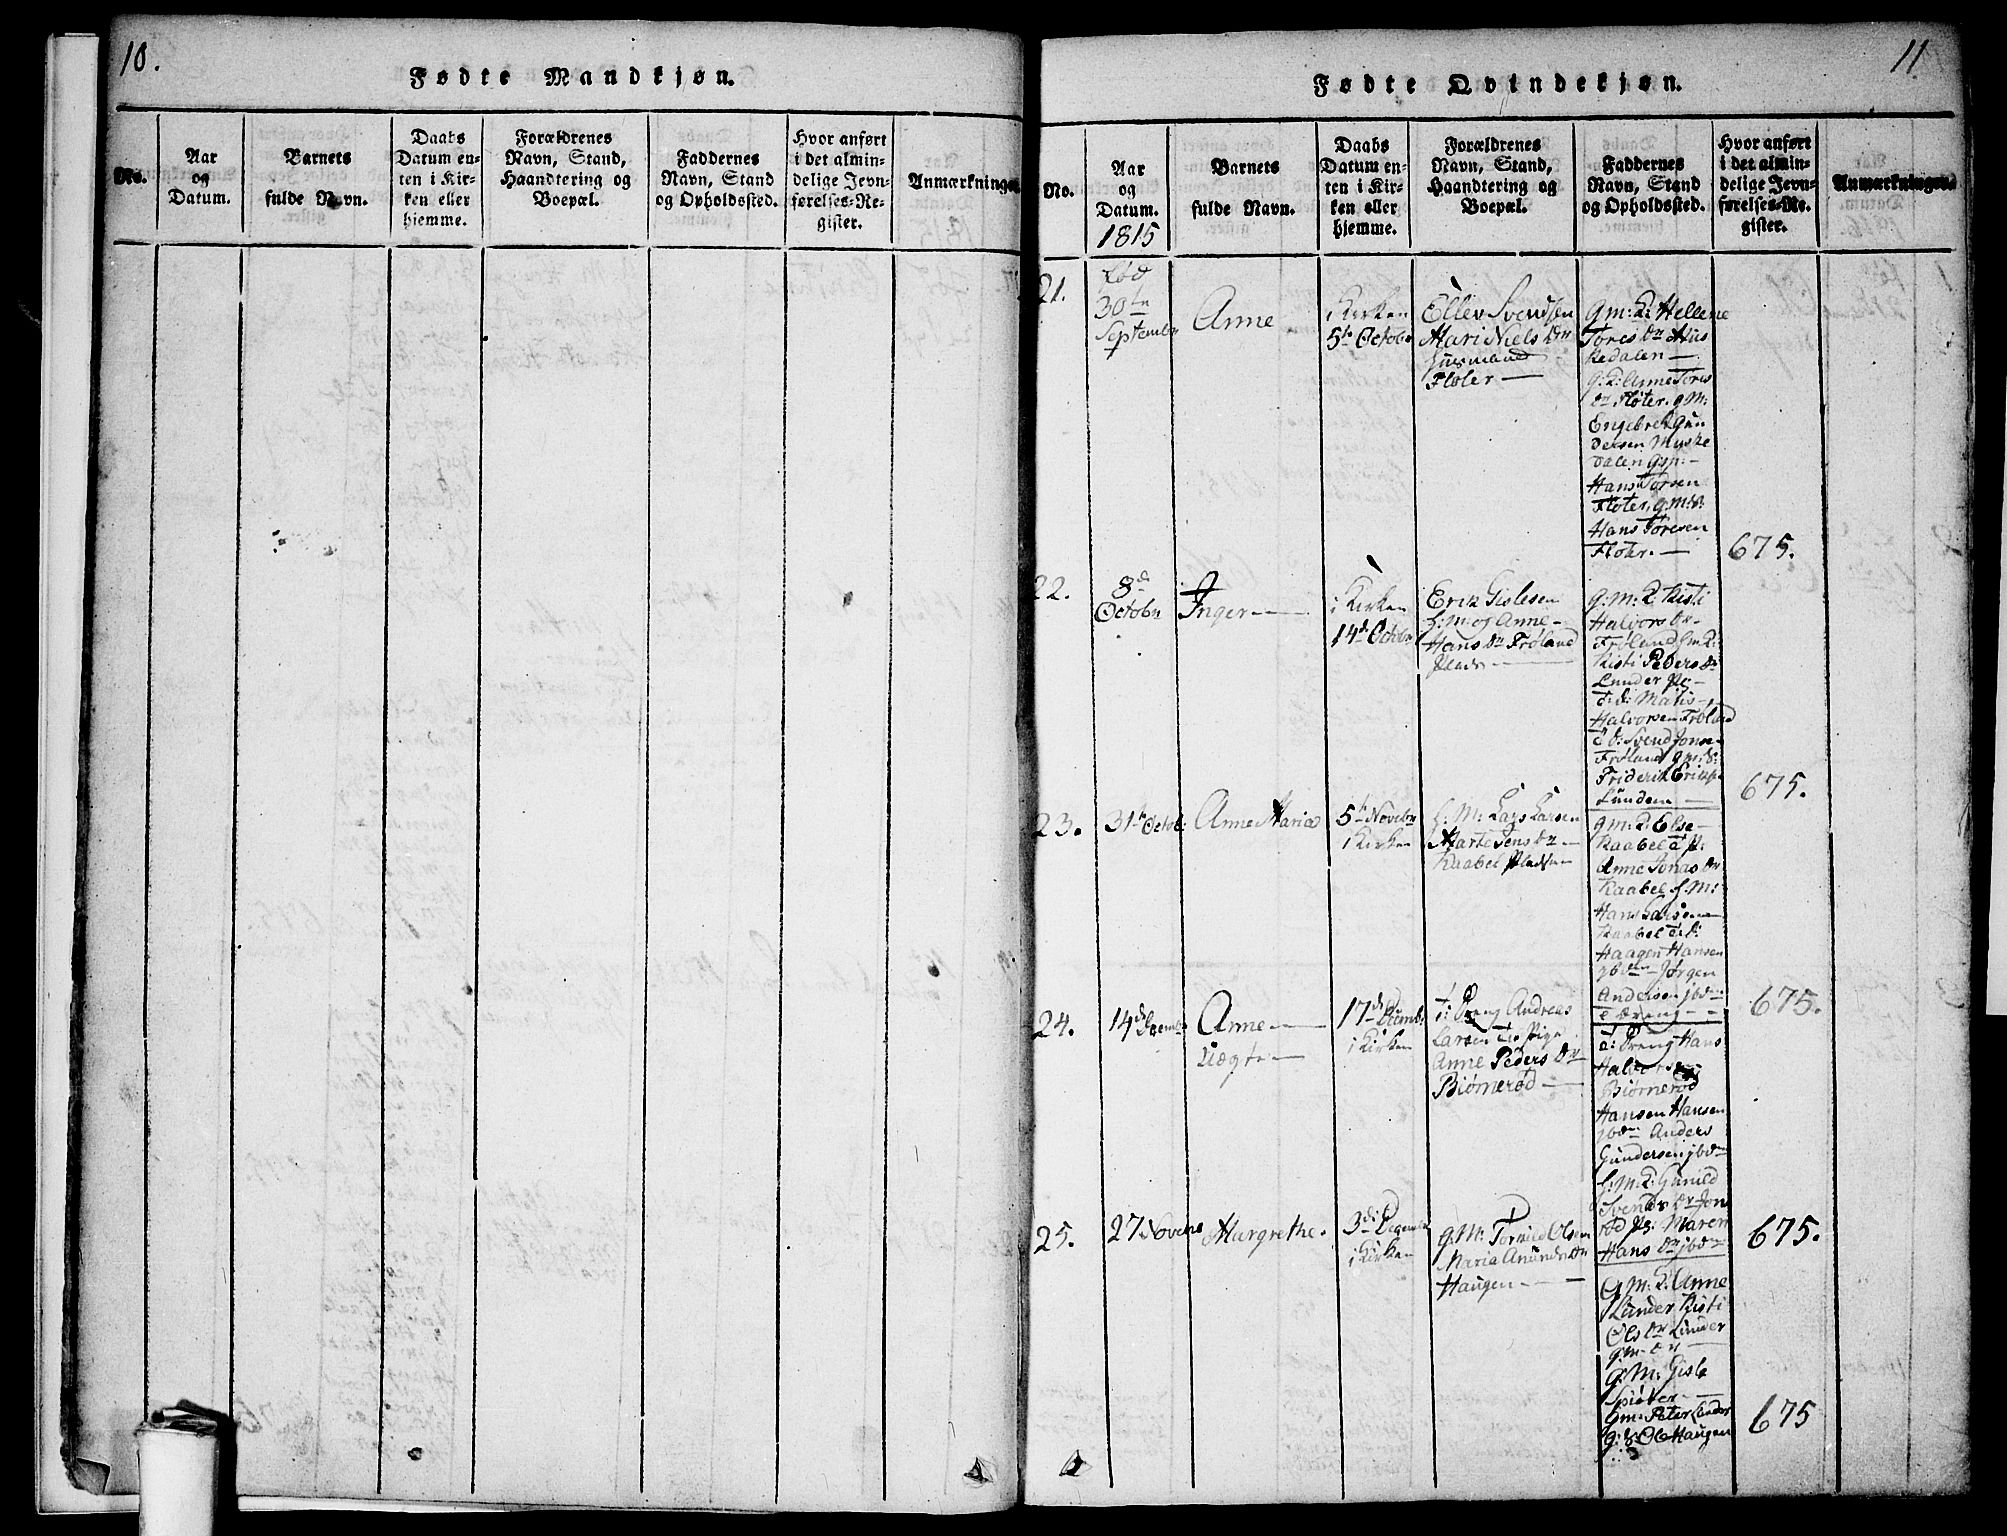 10.
Fødte Mandkjøn.
No.
Aar
og
Datum.
Barnets
fulde Navn.
Daabs
Datum en-
ten i Kir-
ken eller
hjemme.
Forældrenes
Navn, Stand,
Haandtering og
Boepæl.
Faddernes
Navn, Stand
og Opholdssted.
Hvor anført
i det almin-
delige Jevn-
førelses-Re-
gister.
Anmærkninger.
11.
Fødte Qvindekjøn.
No.
Aar
og
Datum.
1815
Barnets
fulde Navn.
Daabs
Datum en-
ten i Kir-
ken eller
hjemme.
Forældrenes
Navn, Stand,
Haandtering og
Boepæl.
Faddernes
Navn, Stand
og Opholdssted.
Hvor anført
i det almin-
delige Jevn-
førelses-Re-
gister.
Anmærkninger.
21.
Fød
30te
September
Anne
i Kirken
5te Octobr
Ellev Svendsen
Mari Niels Dtr
Huusmand
Fløter
g: m: K: Hellene
Tores Dtr Mus
kedalen
g: K: Anne Tores
Dr Fløter. g: M:
Engebret Gun
dersen Muske
dalen gsp:
Hans Torsen
Fløter, g: m: d:
Hans Toresen
Fløter.
675.
22.
8de
Octobr
Inger
i Kirken
14de Octobr
Erik Gislesen
H: M: og Anne
Hans Dtr Frøland
Plads
g: m: K: Kisti
Halvors Dr
Frøland Gm: K:
Kisti Peders Dr
Lunder Pe
t: d: Matis
Halvorsen Frøland
t: d: Svend Jonse
Frøland g: m: d:
Friderik Eriks
Lunden
675.
23.
31te Octob:
Anne Maria
5te Novebr
i Kirken
H: M: Lars Larsen
Marte Jens Dtr
Kaabel Pladsen
g: m: K: Else
Kaabel t: P:
Anne Jonas Dr
Kaabel H: M:
Hans Larsen
Kaabel t: d:
Haagen Hansen
ibdm Jørgen
Andersen ibdm
675.
24.
14de Decemb
Anne
Uægte
17de Decemb:
i Kirken
t: Dreng Andreas
Larsen t: Pige
Anne Peders Dtr
Biørnerød
t: Dreng Hans
Halvorsen
Biørnerød
Hansen Hansen
ibdm Anders
Gundersen ibdm
H: M: K: Gunild
Svends Dr Jon
rød Pg: Maren
Hans Dr ibdm
675.
25.
27 Novebr
Margrethe.
3de Decembr
i Kirken
g: M: Tormod Olsen
Maria Anunds Dtr
Haugen
G: M: K: Anne
Lunder Kisti
Ols Dr Lunder
g: M: Gisle
Spiøter
Gm: Peter Lunder
g: d: Ole Haugen
675